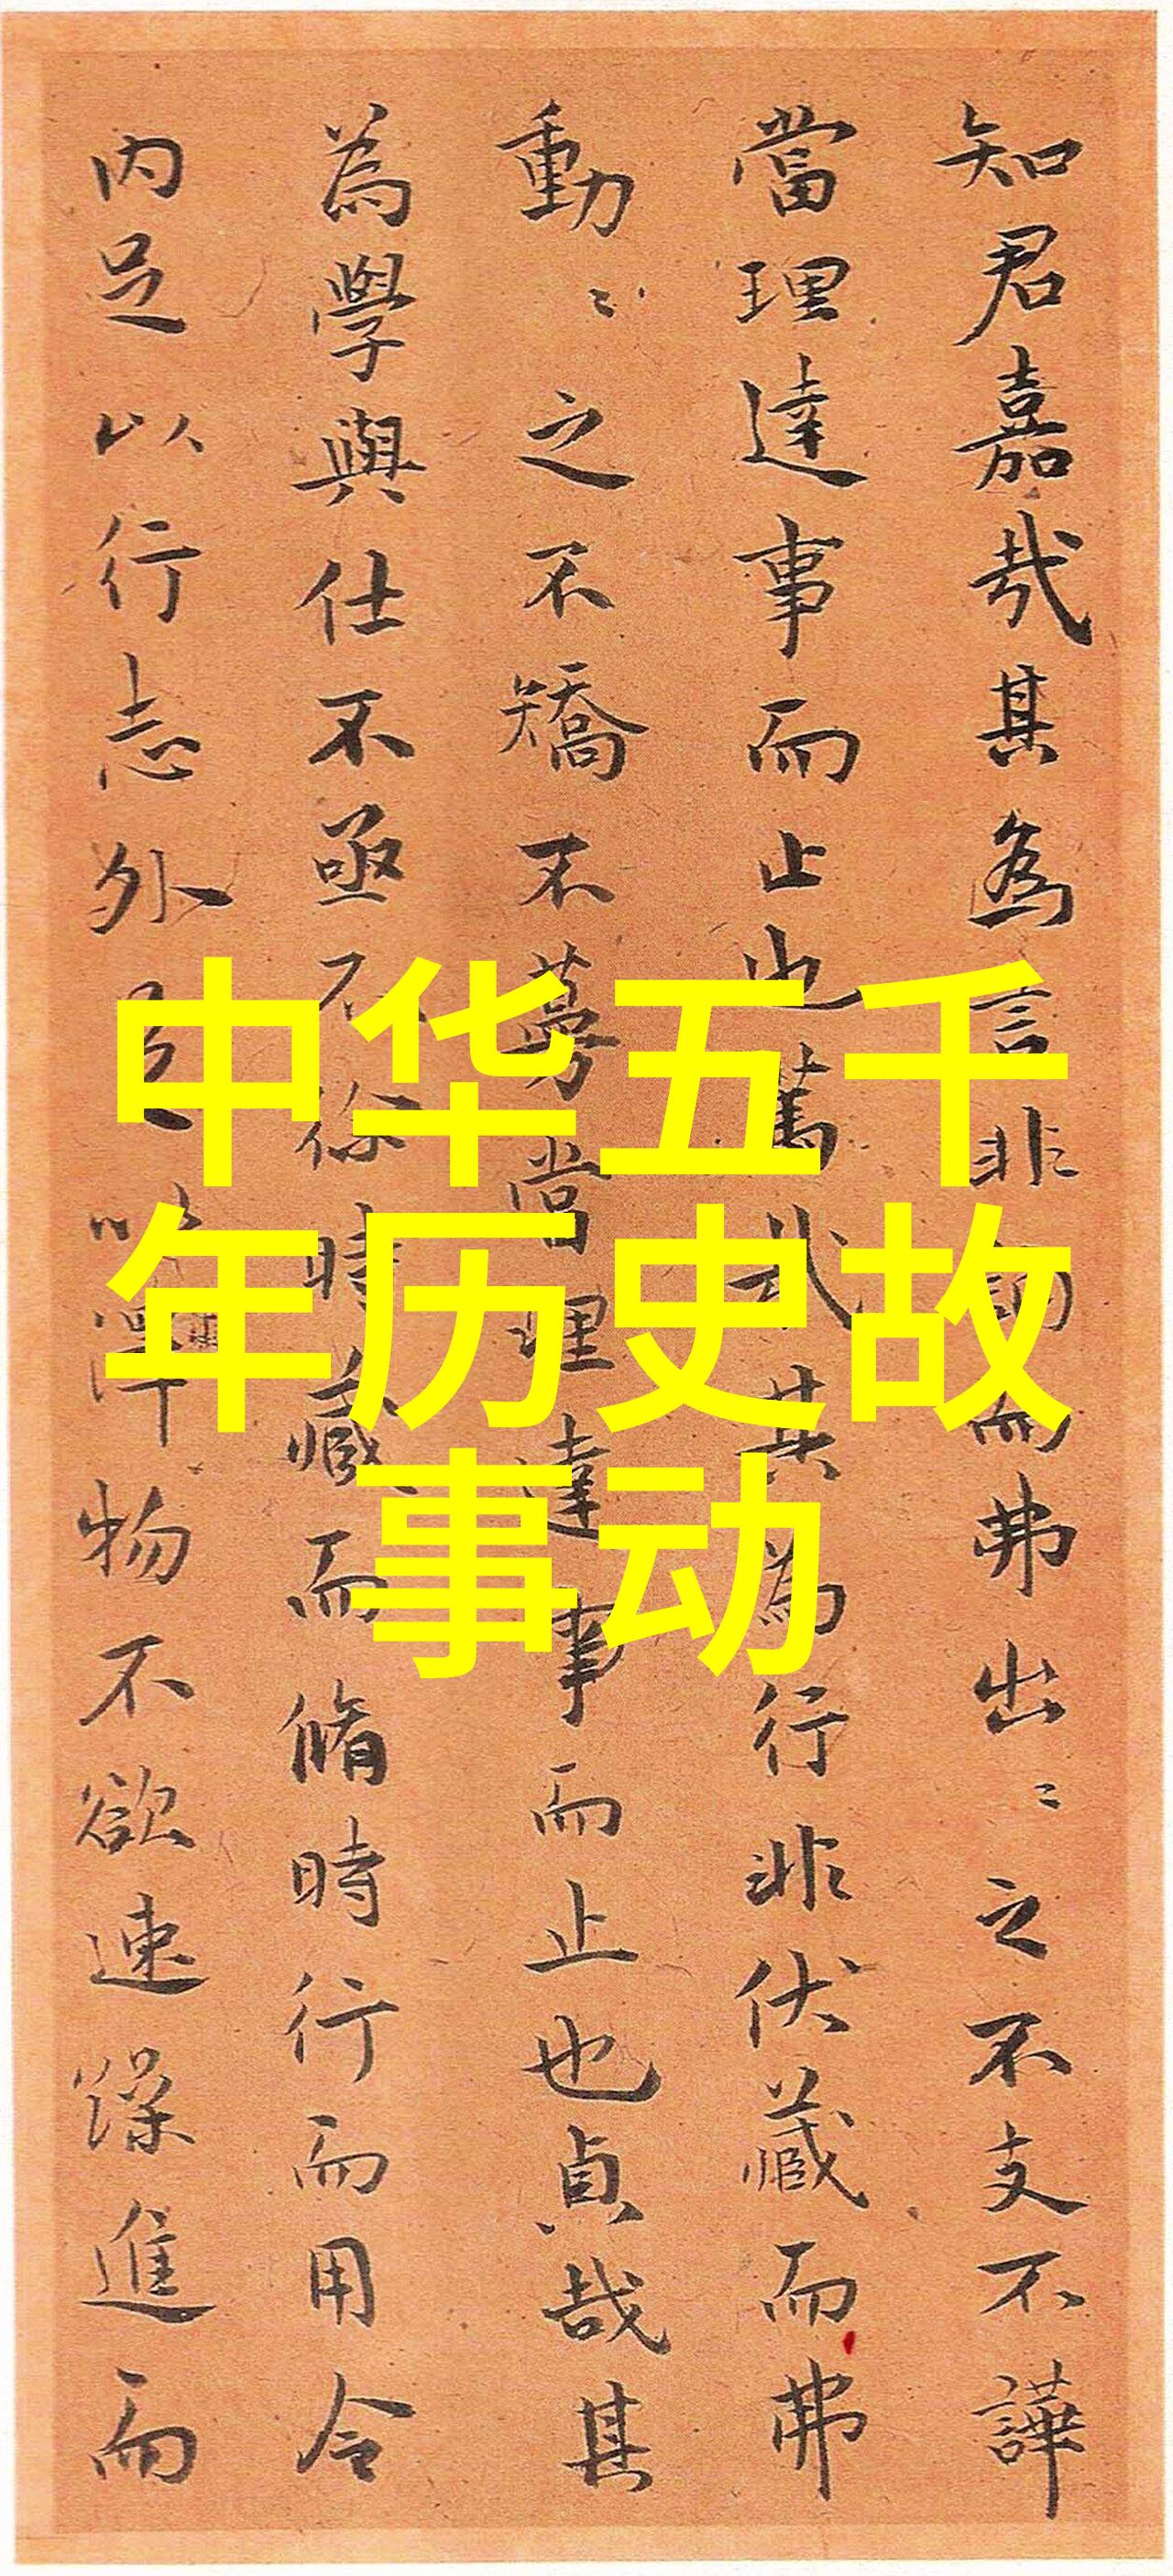 知君嘉哉其為言非而弗出〻之不支不譁
當理達事而止也哉其為行非伏藏而弗
動〻之不矯不當理達事而止也貞哉其
為學與仕不亟不徐時藏而脩時行而用令
内足以行志外足以澤物不欲速躁進而
中华五千
年历史故
事动